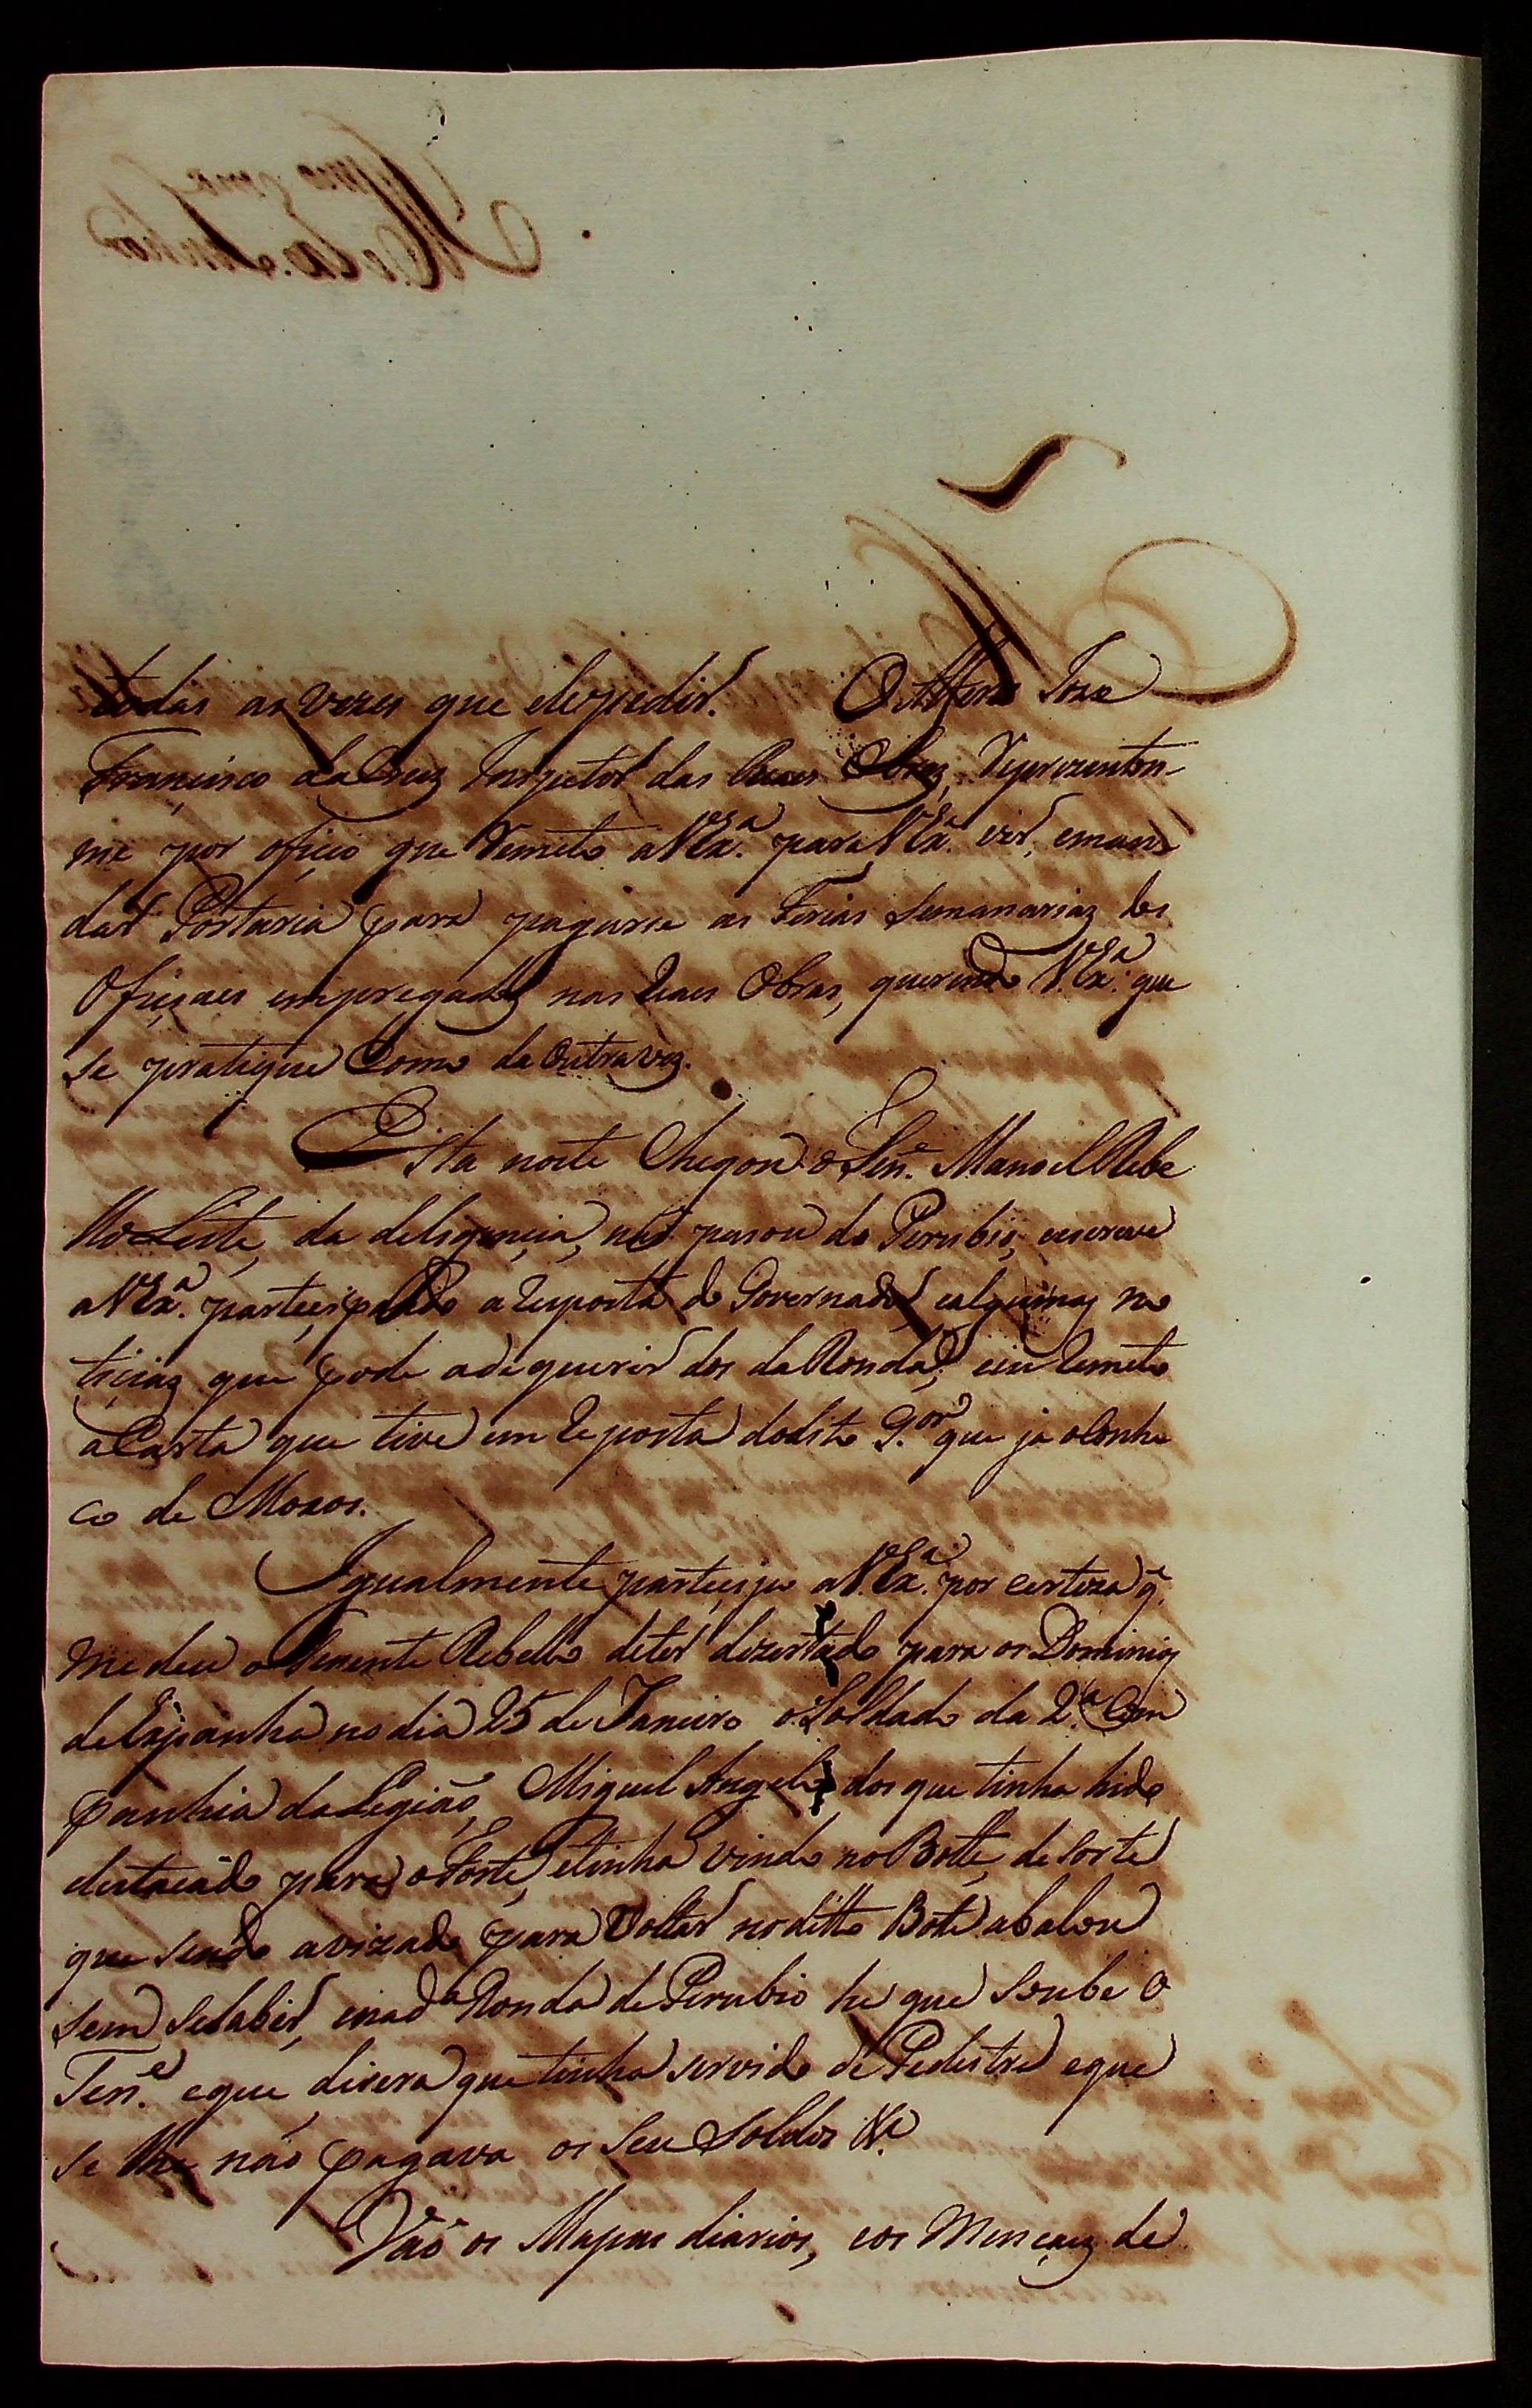 todas as vezes que elle pedir. O Alferes Joze
Francisco da Cruz Inspetor das Reaes Obras, Reprezentou-
me por oficio que Remeto a V Ex.ª para V Ex.ª vêr, eman
dar Portaria para pagarse as Ferias Semanariaz dos
Oficiaes empregados nas Reaes Obras, querendo V. Ex.ª que
se pratique Como da Outra vez.
Esta noite Chegou o Ten.e Manoel Rebe
llo Leite, da deligencia, naõ pasou do Perubio, eescreve
a V Ex.ª partecipando a Resposta do Governador, ealgumaz no
ticiaz que pode adequerir dos da Ronda, eeu Remeto
a Carta que tive em Reposta do dito G.or que ja o Conhe
co de Moxos.
Igualmente partecipo a V. Ex.ª por certeza q.
me deu o Tenente Rebello deter dizertado para os Dominios
de Espanha no dia 25 de Janeiro o Soldado da 2.ª Com
panhia da Legiaõ, Miguel Angelo dos que tinha hido
destacado para o Forte, etinha vindo no Botte, de Sorte
que sendo avizado para Voltar no ditto Bote abalou
sem seSaber, enad.ª Ronda de Perubio he que Soube o
Ten.e eque dicera que tinha servido de Pedestre eque
se lhe naõ pagava os Seu Soldos &.ª
Vaõ os Mapas diarios, eos Mençaez de